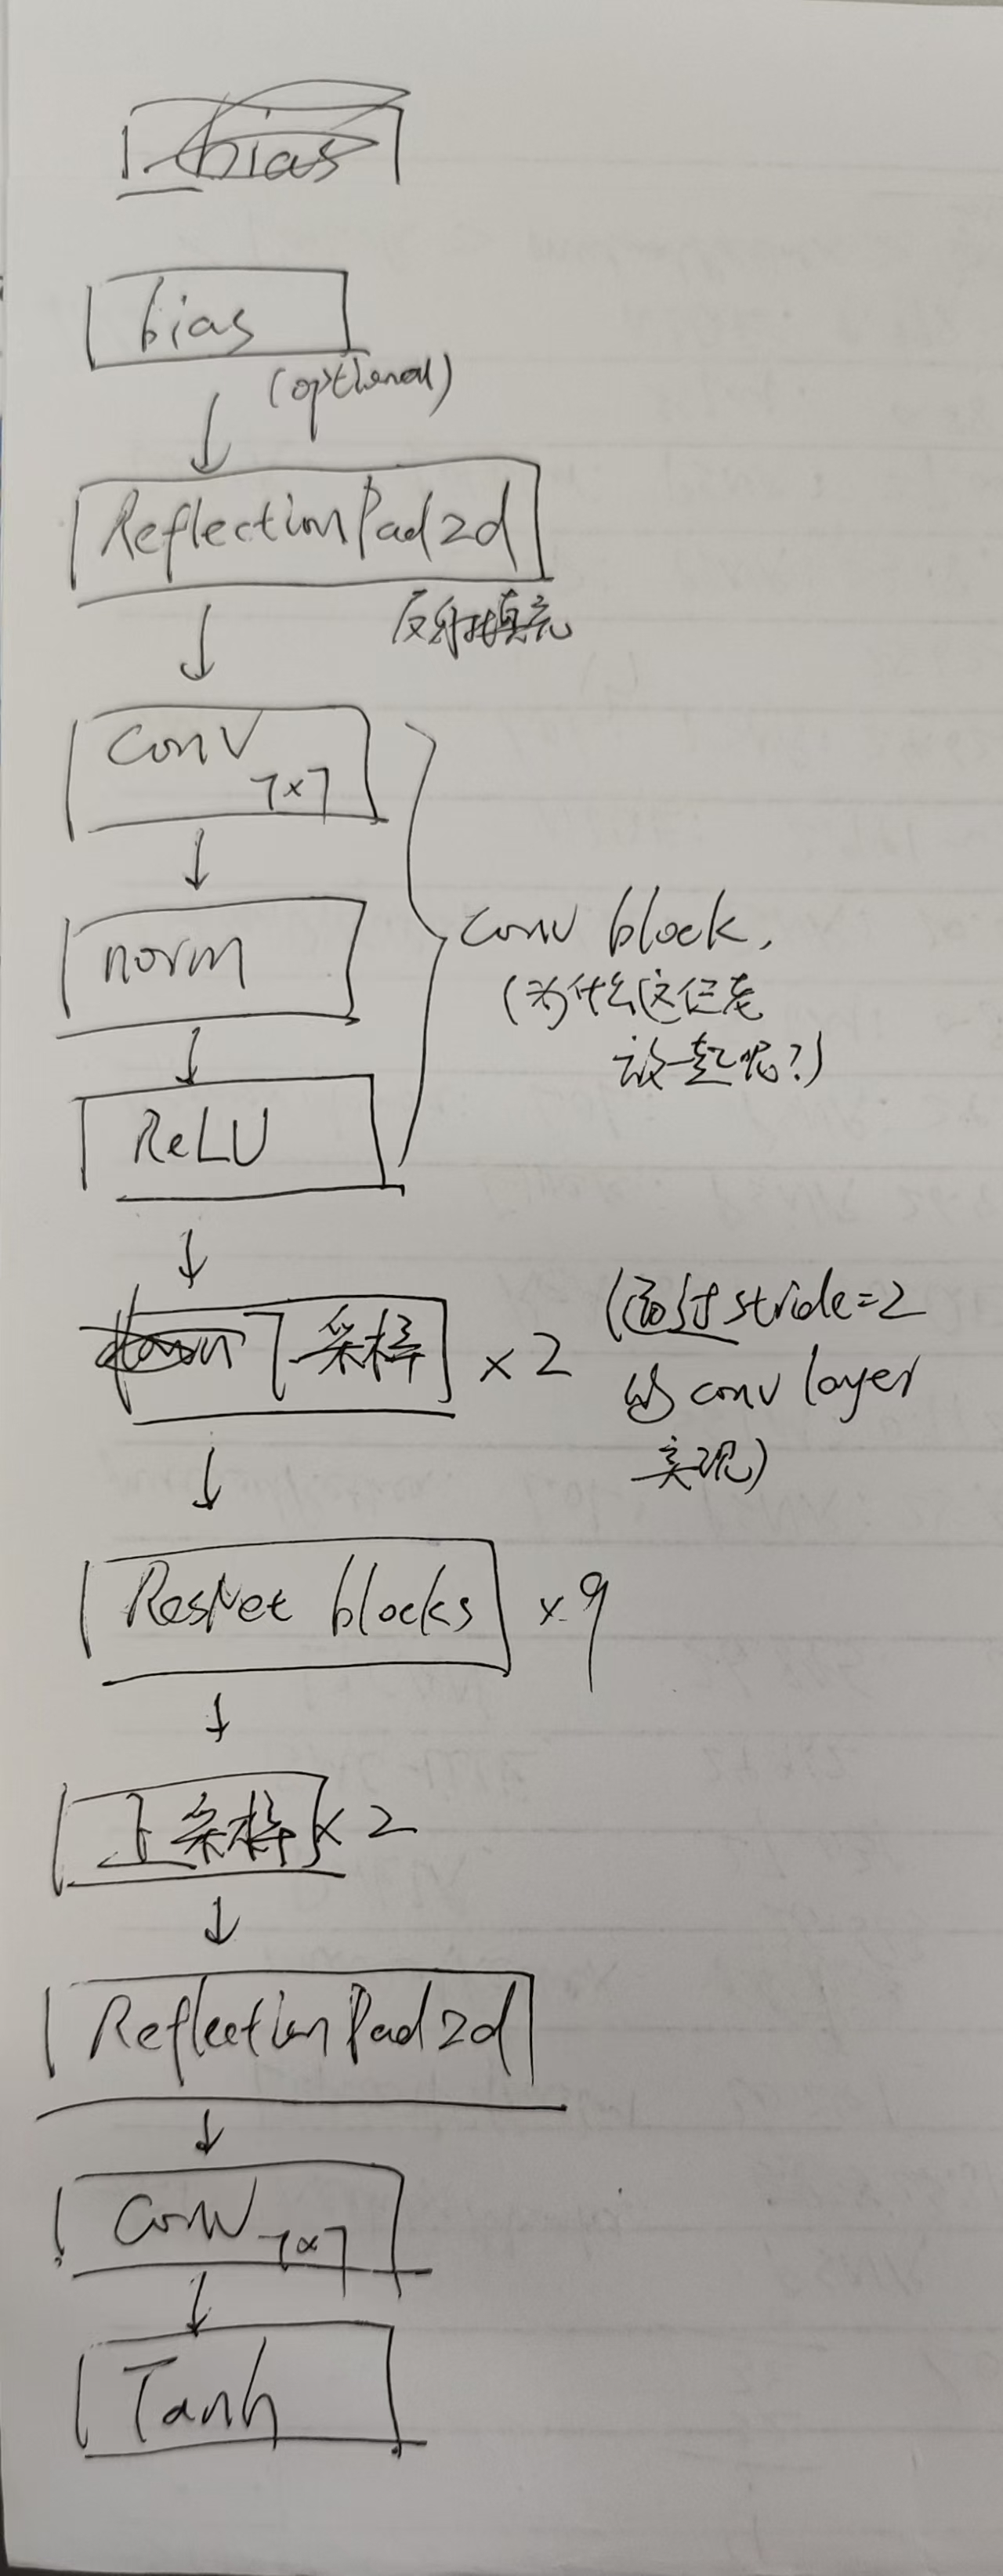 bias
bias
(optional)
ReflectionPad2d
反射填充
conv
7×7
norm
ReLU
conv block,
(为什么这仨老
放一起呢?)
down 下采样 ×2
(通过stride=2
的conv layer
实现)
ResNet blocks ×9
上采样 ×2
ReflectionPad2d
conv 7×7
Tanh